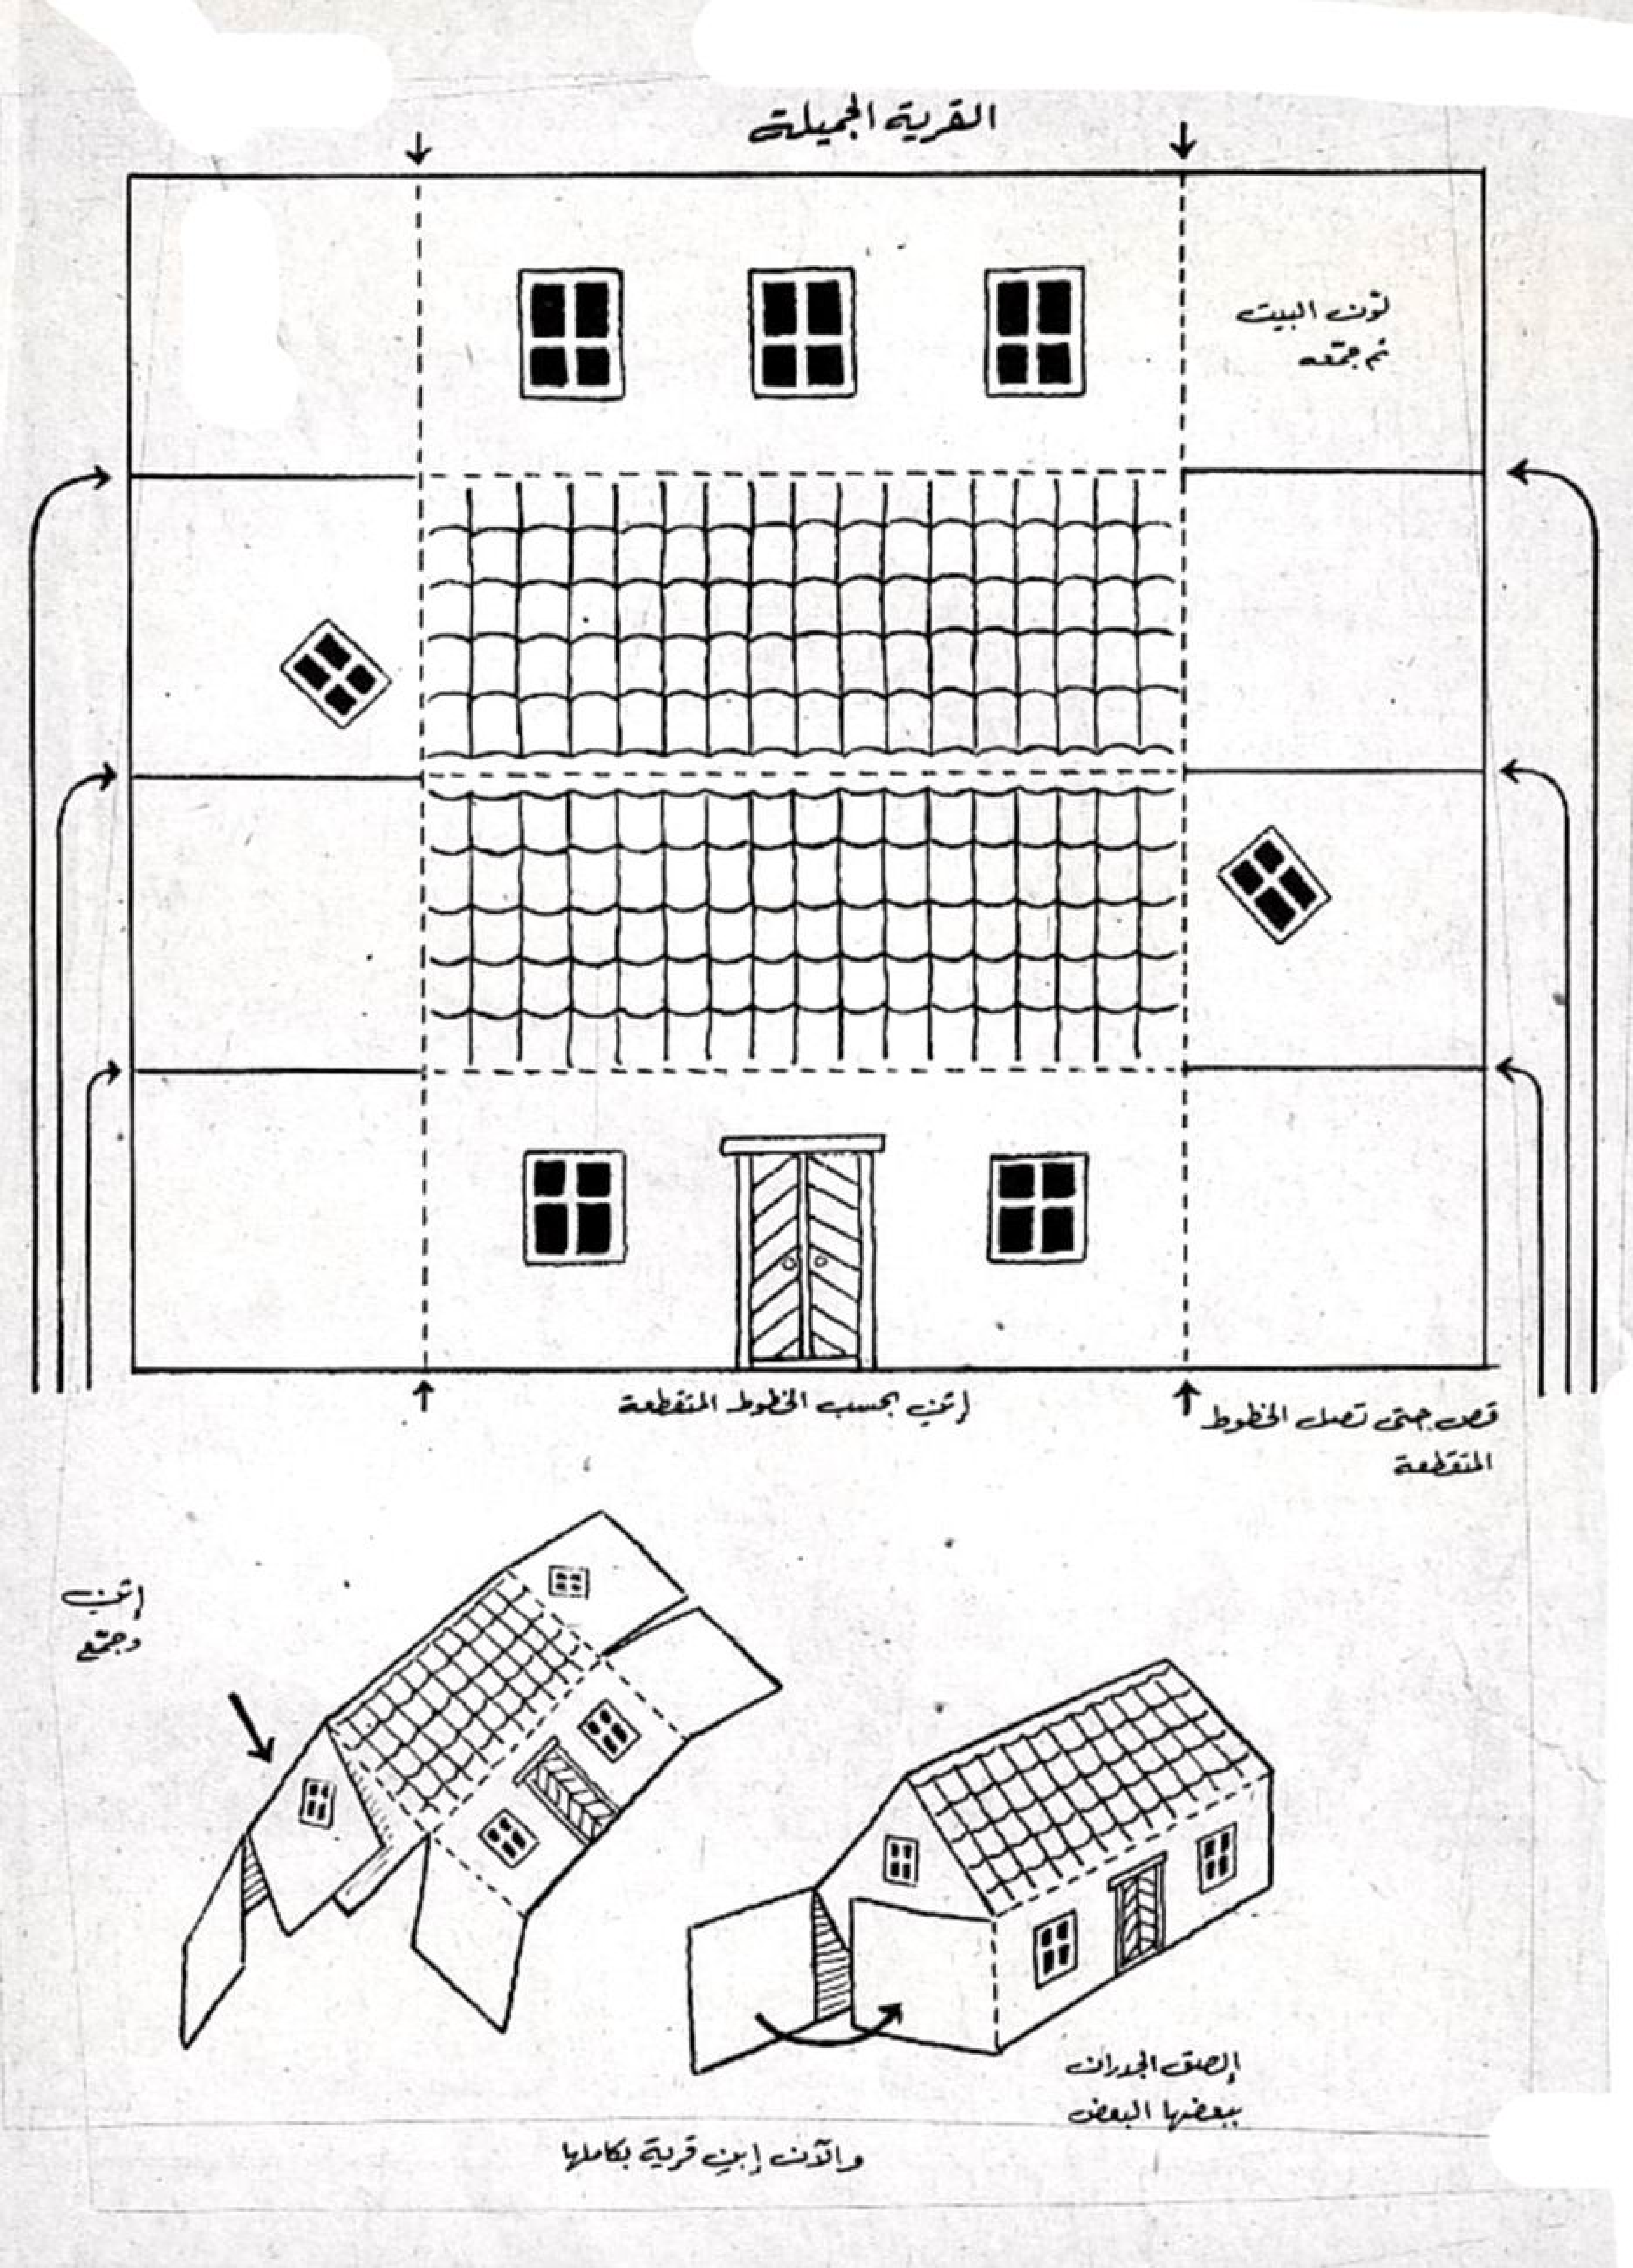 القرية الجميلة
لوّن البيت
ثم جمّعه
إثنِ بحسب الخطوط المتقطعة
قص حتى تصل الخطوط
المتقطعة
إثنِ
وجمّع
إلصق الجدران
ببعضها البعض
والآن إبنِ قرية بكاملها